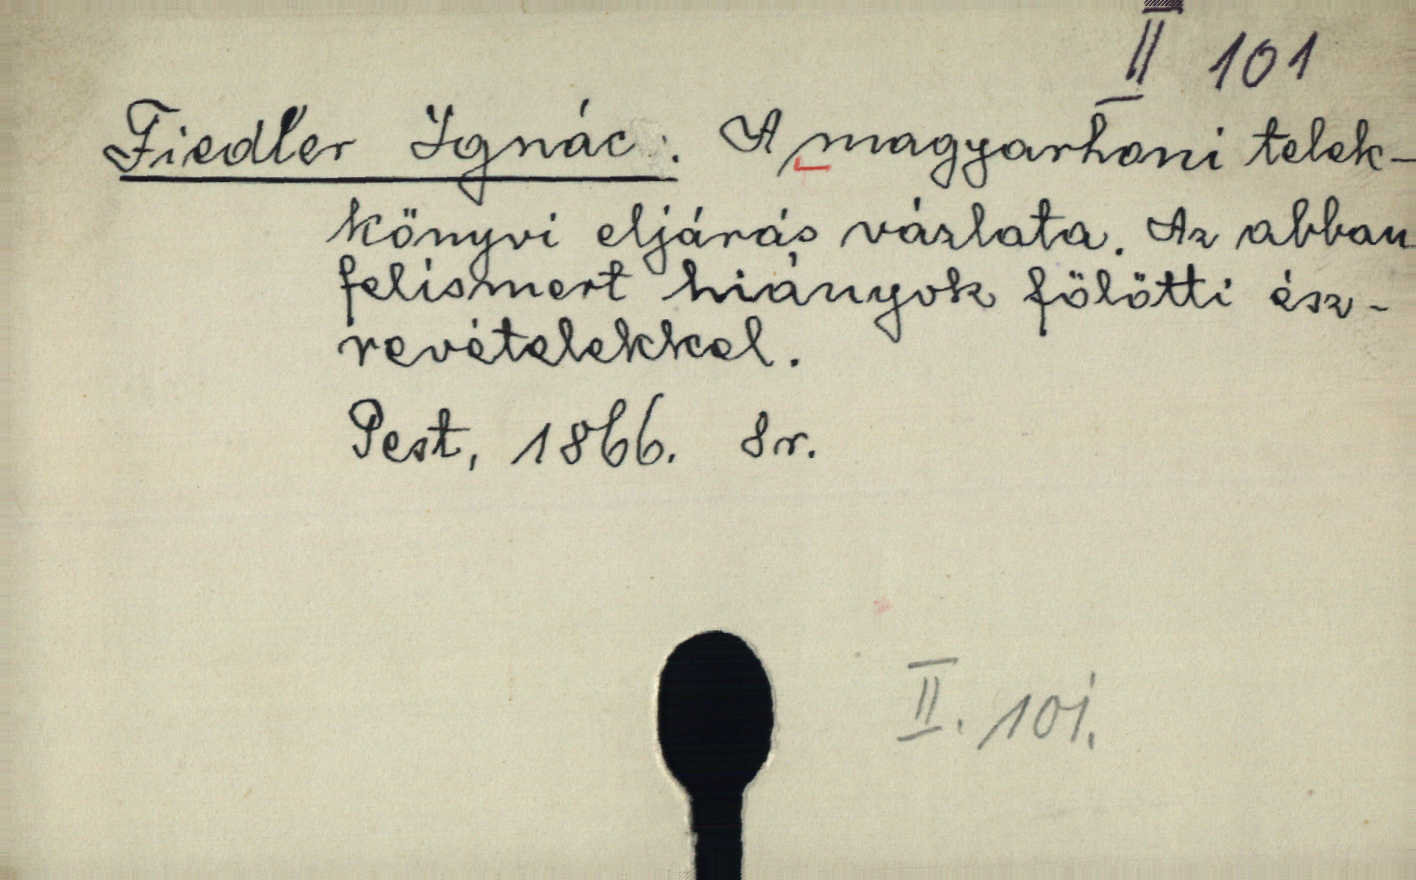 II 101
Fiedler Ignác: A magyarhoni telek-
könyvi eljárás vázlata. Az abban
felismert hiányok fölötti ész-
revételekkel.
Pest, 1866. 8r.
II. 101.